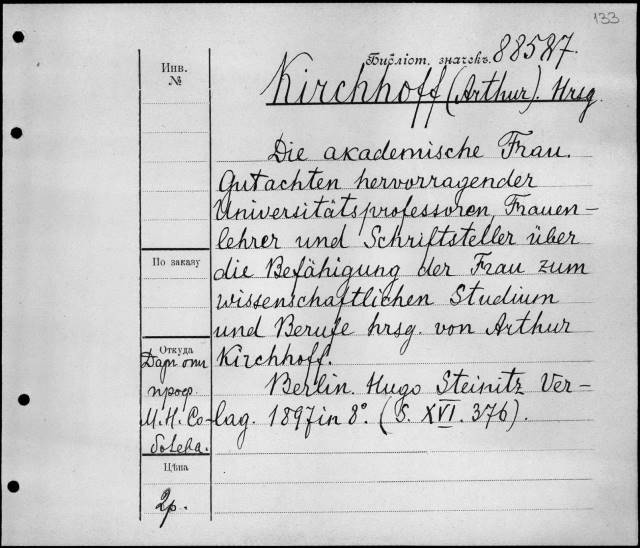 133
Библiот. значекъ. 88587.
Инв.
№
Kirchhoff (Arthur). Hrsg.
Die akademische Frau.
Gutachten hervorragender
Universitätsprofessoren, Frauen-
lehrer und Schriftsteller über
die Befähigung der Frau zum
wissenschaftlichen Studium
und Berufe hrsg. von Arthur
Kirchhoff.
Berlin. Hugo Steinitz Ver-
lag. 1897 in 8°. (S. XVI. 376).
По заказу
Откуда
Даръ отъ
проф.
М.Н. Со-
болева.
Цѣна
2р.